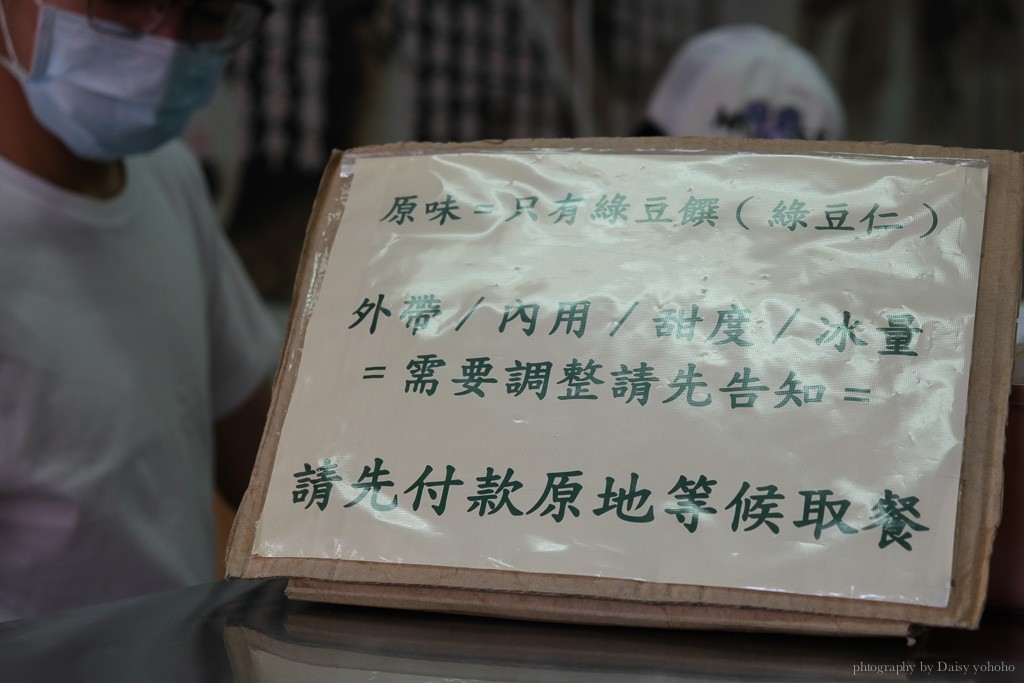 原味=只有綠豆饌(綠豆仁)
外帶/內用/甜度/冰量
=需要調整請先告知=
請先付款原地等候取餐
phtography by Daisy yohoho